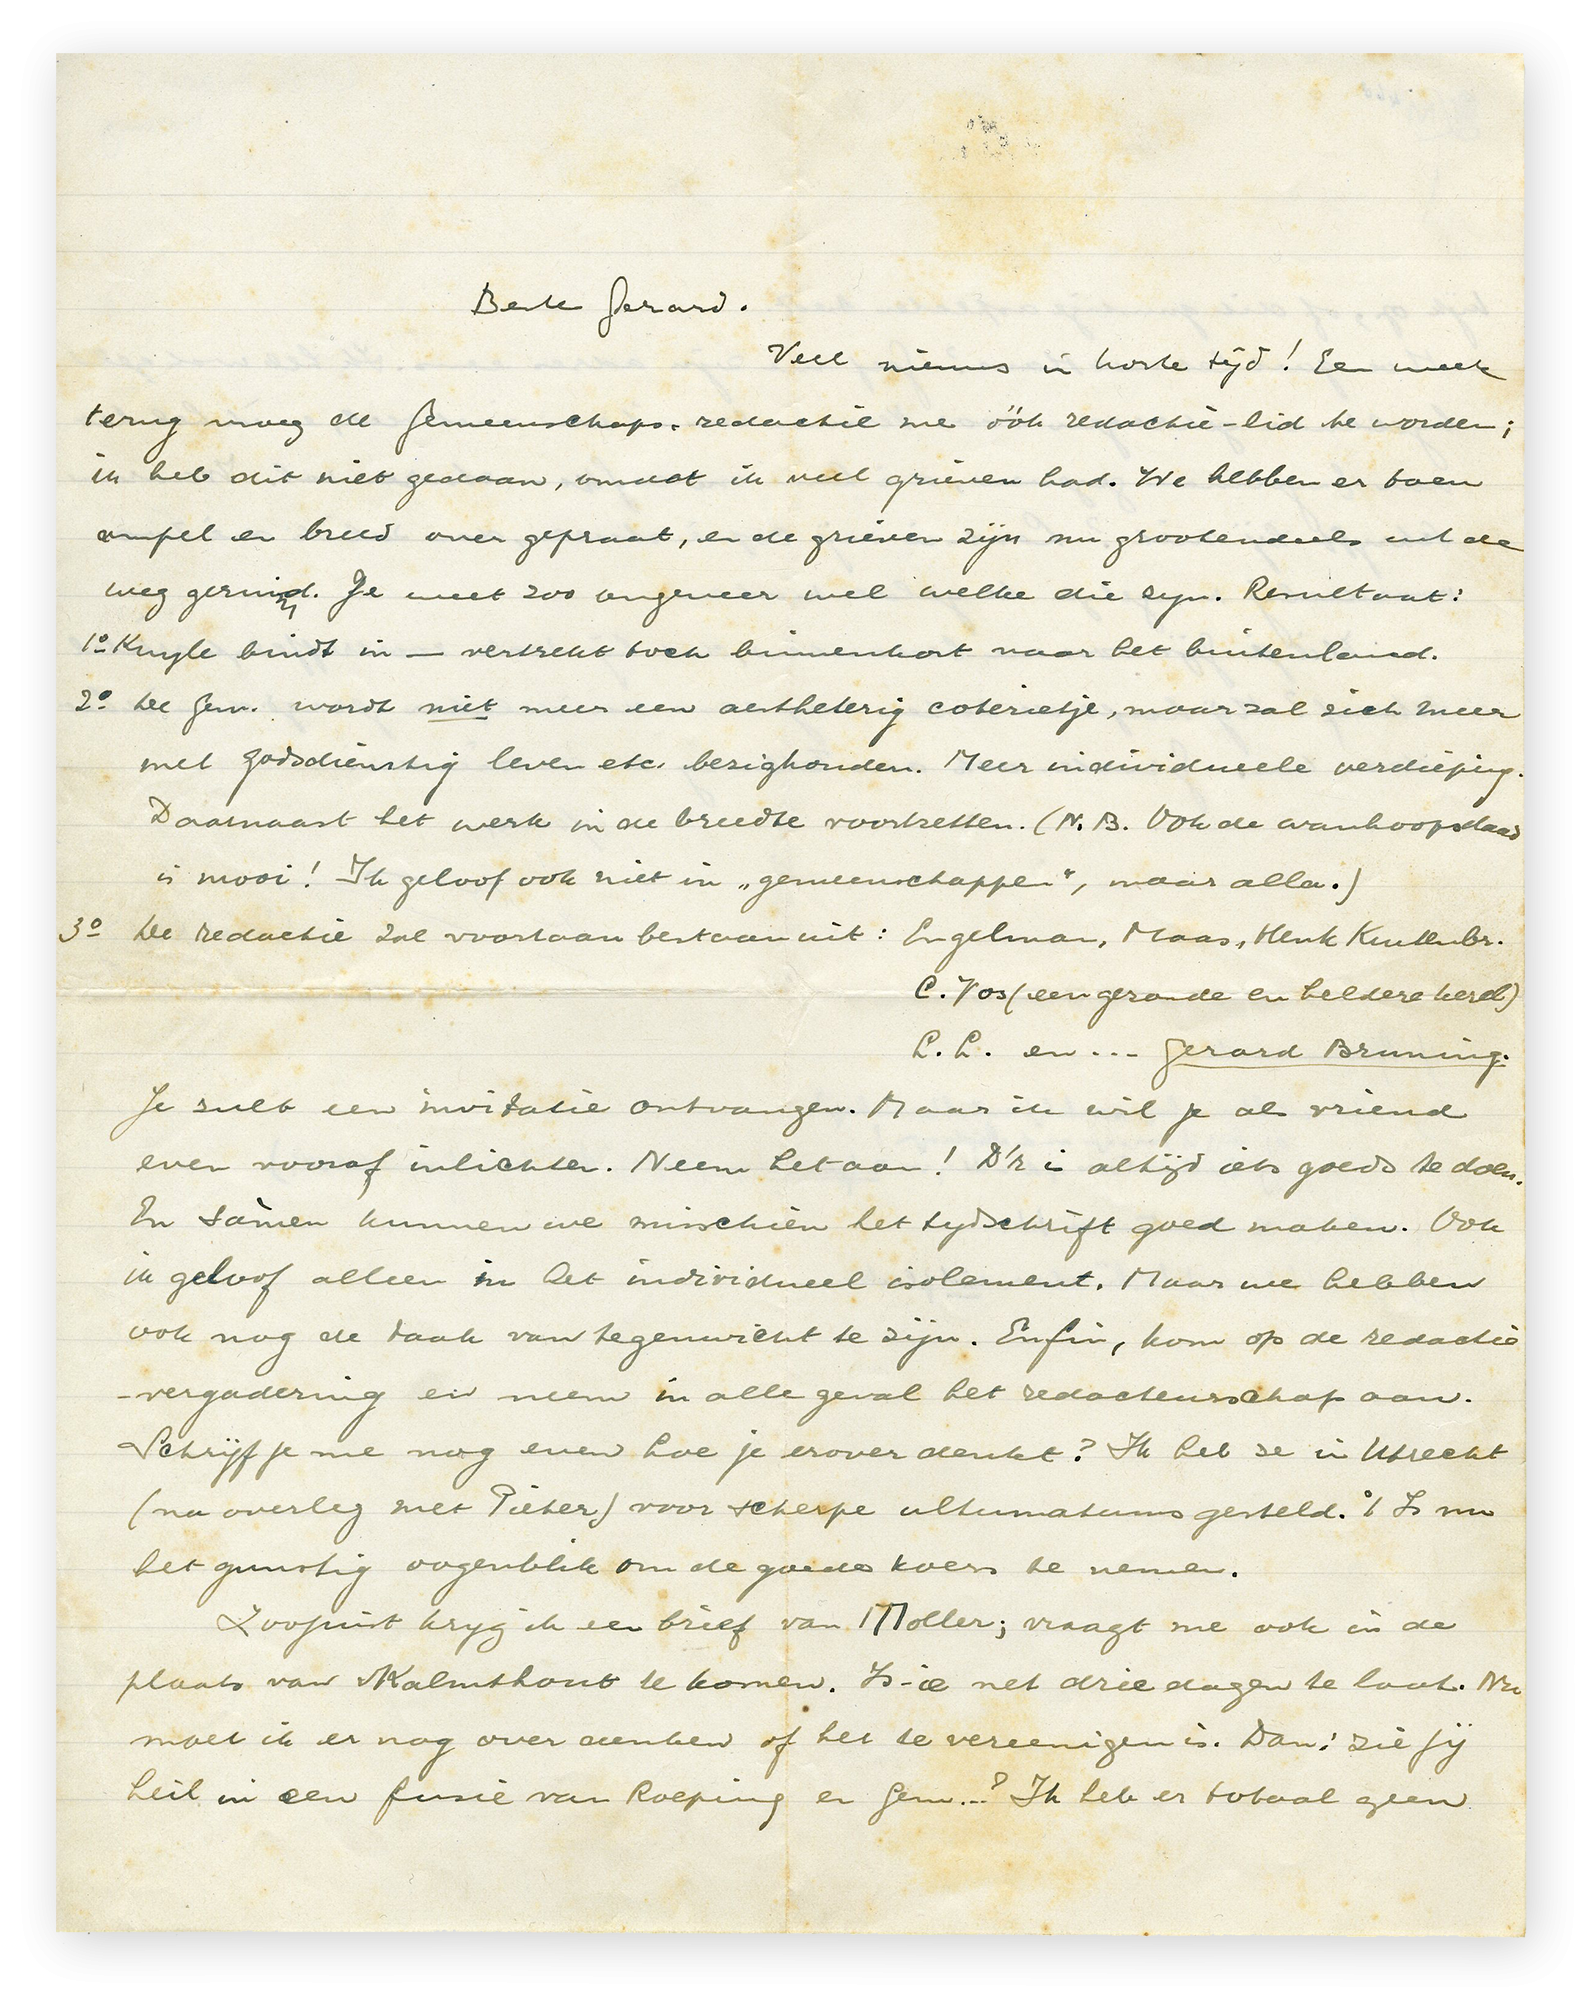 Beste Gerard.
Veel nieuws in korte tijd! Een week
terug vroeg de Gemeenschaps-redactie me óók redactie-lid te worden;
ik heb dit niet gedaan, omdat ik veel grieven had. We hebben er toen
ampel en breed over gepraat, en de grieven zijn nu grootendeels uit de
weg geruimd. Je weet zoo ongeveer wel welke die zyn. Resultaat:
1º Kuyle bindt in — vertrekt toch binnenkort naar het buitenland.
2º De Gem. wordt niet meer een aestheterig coterietje, maar zal zich meer
met godsdienstig leven etc. bezighouden. Meer individueele verdieping.
Daarnaast het werk in de breedte voortzetten. (N.B. Ook de wanhoopsdaad
is mooi! Ik geloof ook niet in „gemeenschappen", maar alla.)
3º De redactie zal voortaan bestaan uit: Engelman, Maas, Henk Kuitenbr.
C. Vos (een gezonde en heldere kerel)
L.L. en ... Gerard Bruning.
Je zult een invitatie ontvangen. Maar ik wil je als vriend
even vooraf inlichten. Neem het aan! D'r is altijd iets goeds te doen.
En sámen kunnen we misschien het tydschrift goed maken. Ook
ik geloof alleen in het individueel isolement. Maar we hebben
ook nog de taak van tegenwicht te zijn. Enfin, kom op de redactie
-vergadering en neem in alle geval het redacteurschap aan.
Schrijf je me nog even hoe je erover denkt? Ik heb ze in Utrecht
(na overleg met Pieter) voor scherpe ultumatums gesteld. 't Is nu
het gunstig oogenblik om de goede koers te nemen.
Zoojuist kryg ik een brief van Moller; vraagt me ook in de
plaats van Kalmthout te komen. Is-ie net drie dagen te laat. Nu
moet ik er nog over denken of het te vereenigen is. Dan: zie jij
heil in een fusie van Roeping en Gem...? Ik heb er totaal geen